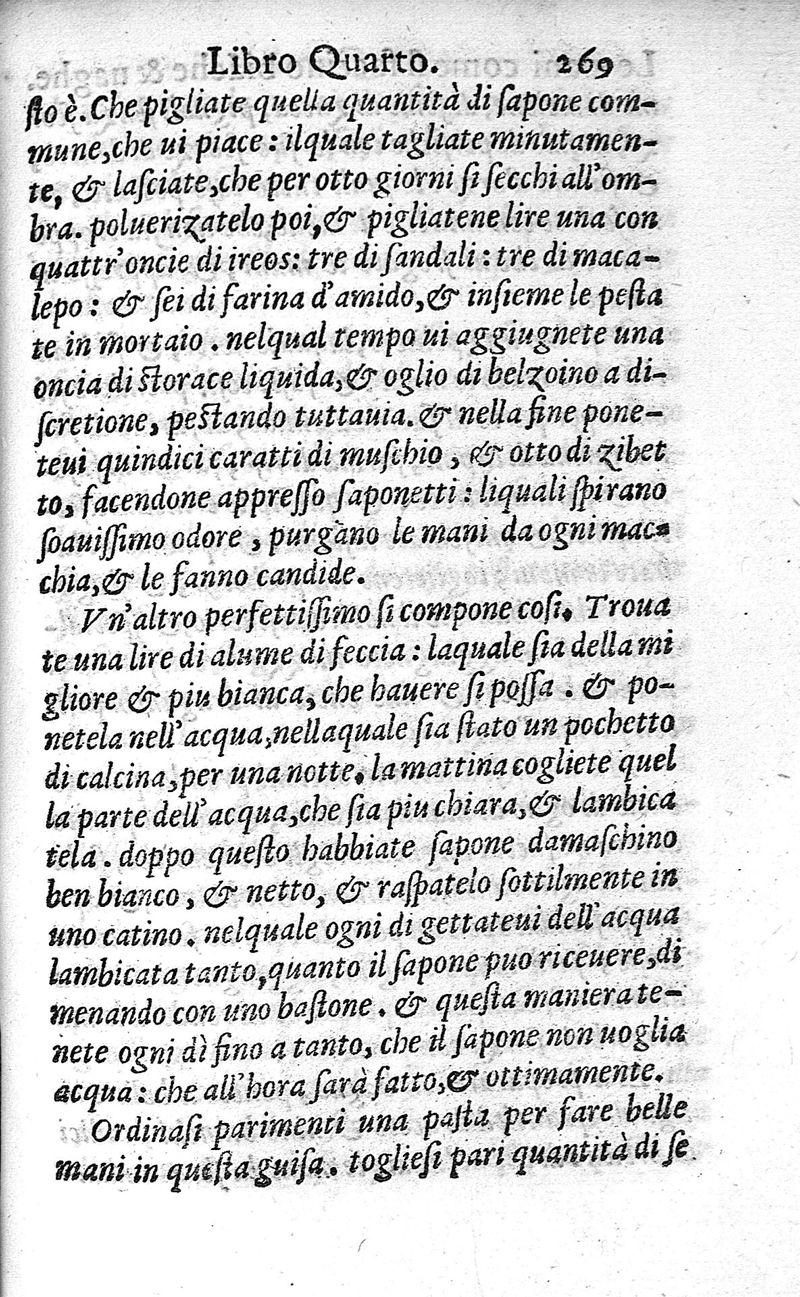 Libro Quarto. 269
ſto è. Che pigliate quella quantità di ſapone com-
mune, che ui piace: ilquale tagliate minutamen-
te, & laſciate, che per otto giorni ſi ſecchi all'om-
bra. poluerizatelo poi, & pigliatene lire una con
quattr'oncie di ireos: tre di ſandali: tre di maca-
lepo: & ſei di farina d'amido, & inſieme le peſta
te in mortaio. nelqual tempo ui aggiugnete una
oncia di ſtorace liquida, & oglio di belzoino a di-
ſcretione, peſtando tuttauia. & nella fine pone-
teui quindici caratti di muſchio, & otto di zibet
to, facendone appreſſo ſaponetti: liquali ſpirano
ſoauiſſimo odore, purgano le mani da ogni mac-
chia, & le fanno candide.
Vn'altro perfettiſſimo ſi compone coſi. Troua
te una lire di alume di feccia: laquale ſia della mi
gliore & piu bianca, che hauere ſi poſſa. & po-
netela nell'acqua, nellaquale ſia ſtato un pochetto
di calcina, per una notte. la mattina cogliete quel
la parte dell'acqua, che ſia piu chiara, & lambica
tela. doppo queſto habbiate ſapone damaſchino
ben bianco, & netto, & raſpatelo ſottilmente in
uno catino. nelquale ogni di gettateui dell'acqua
lambicata tanto, quanto il ſapone puo riceuere, di
menando con uno baſtone. & queſta maniera te-
nete ogni dì fino a tanto, che il ſapone non uoglia
acqua: che all'hora ſarà fatto, & ottimamente.
Ordinaſi parimenti una paſta per fare belle
mani in queſta guiſa. toglieſi pari quantità di ſe